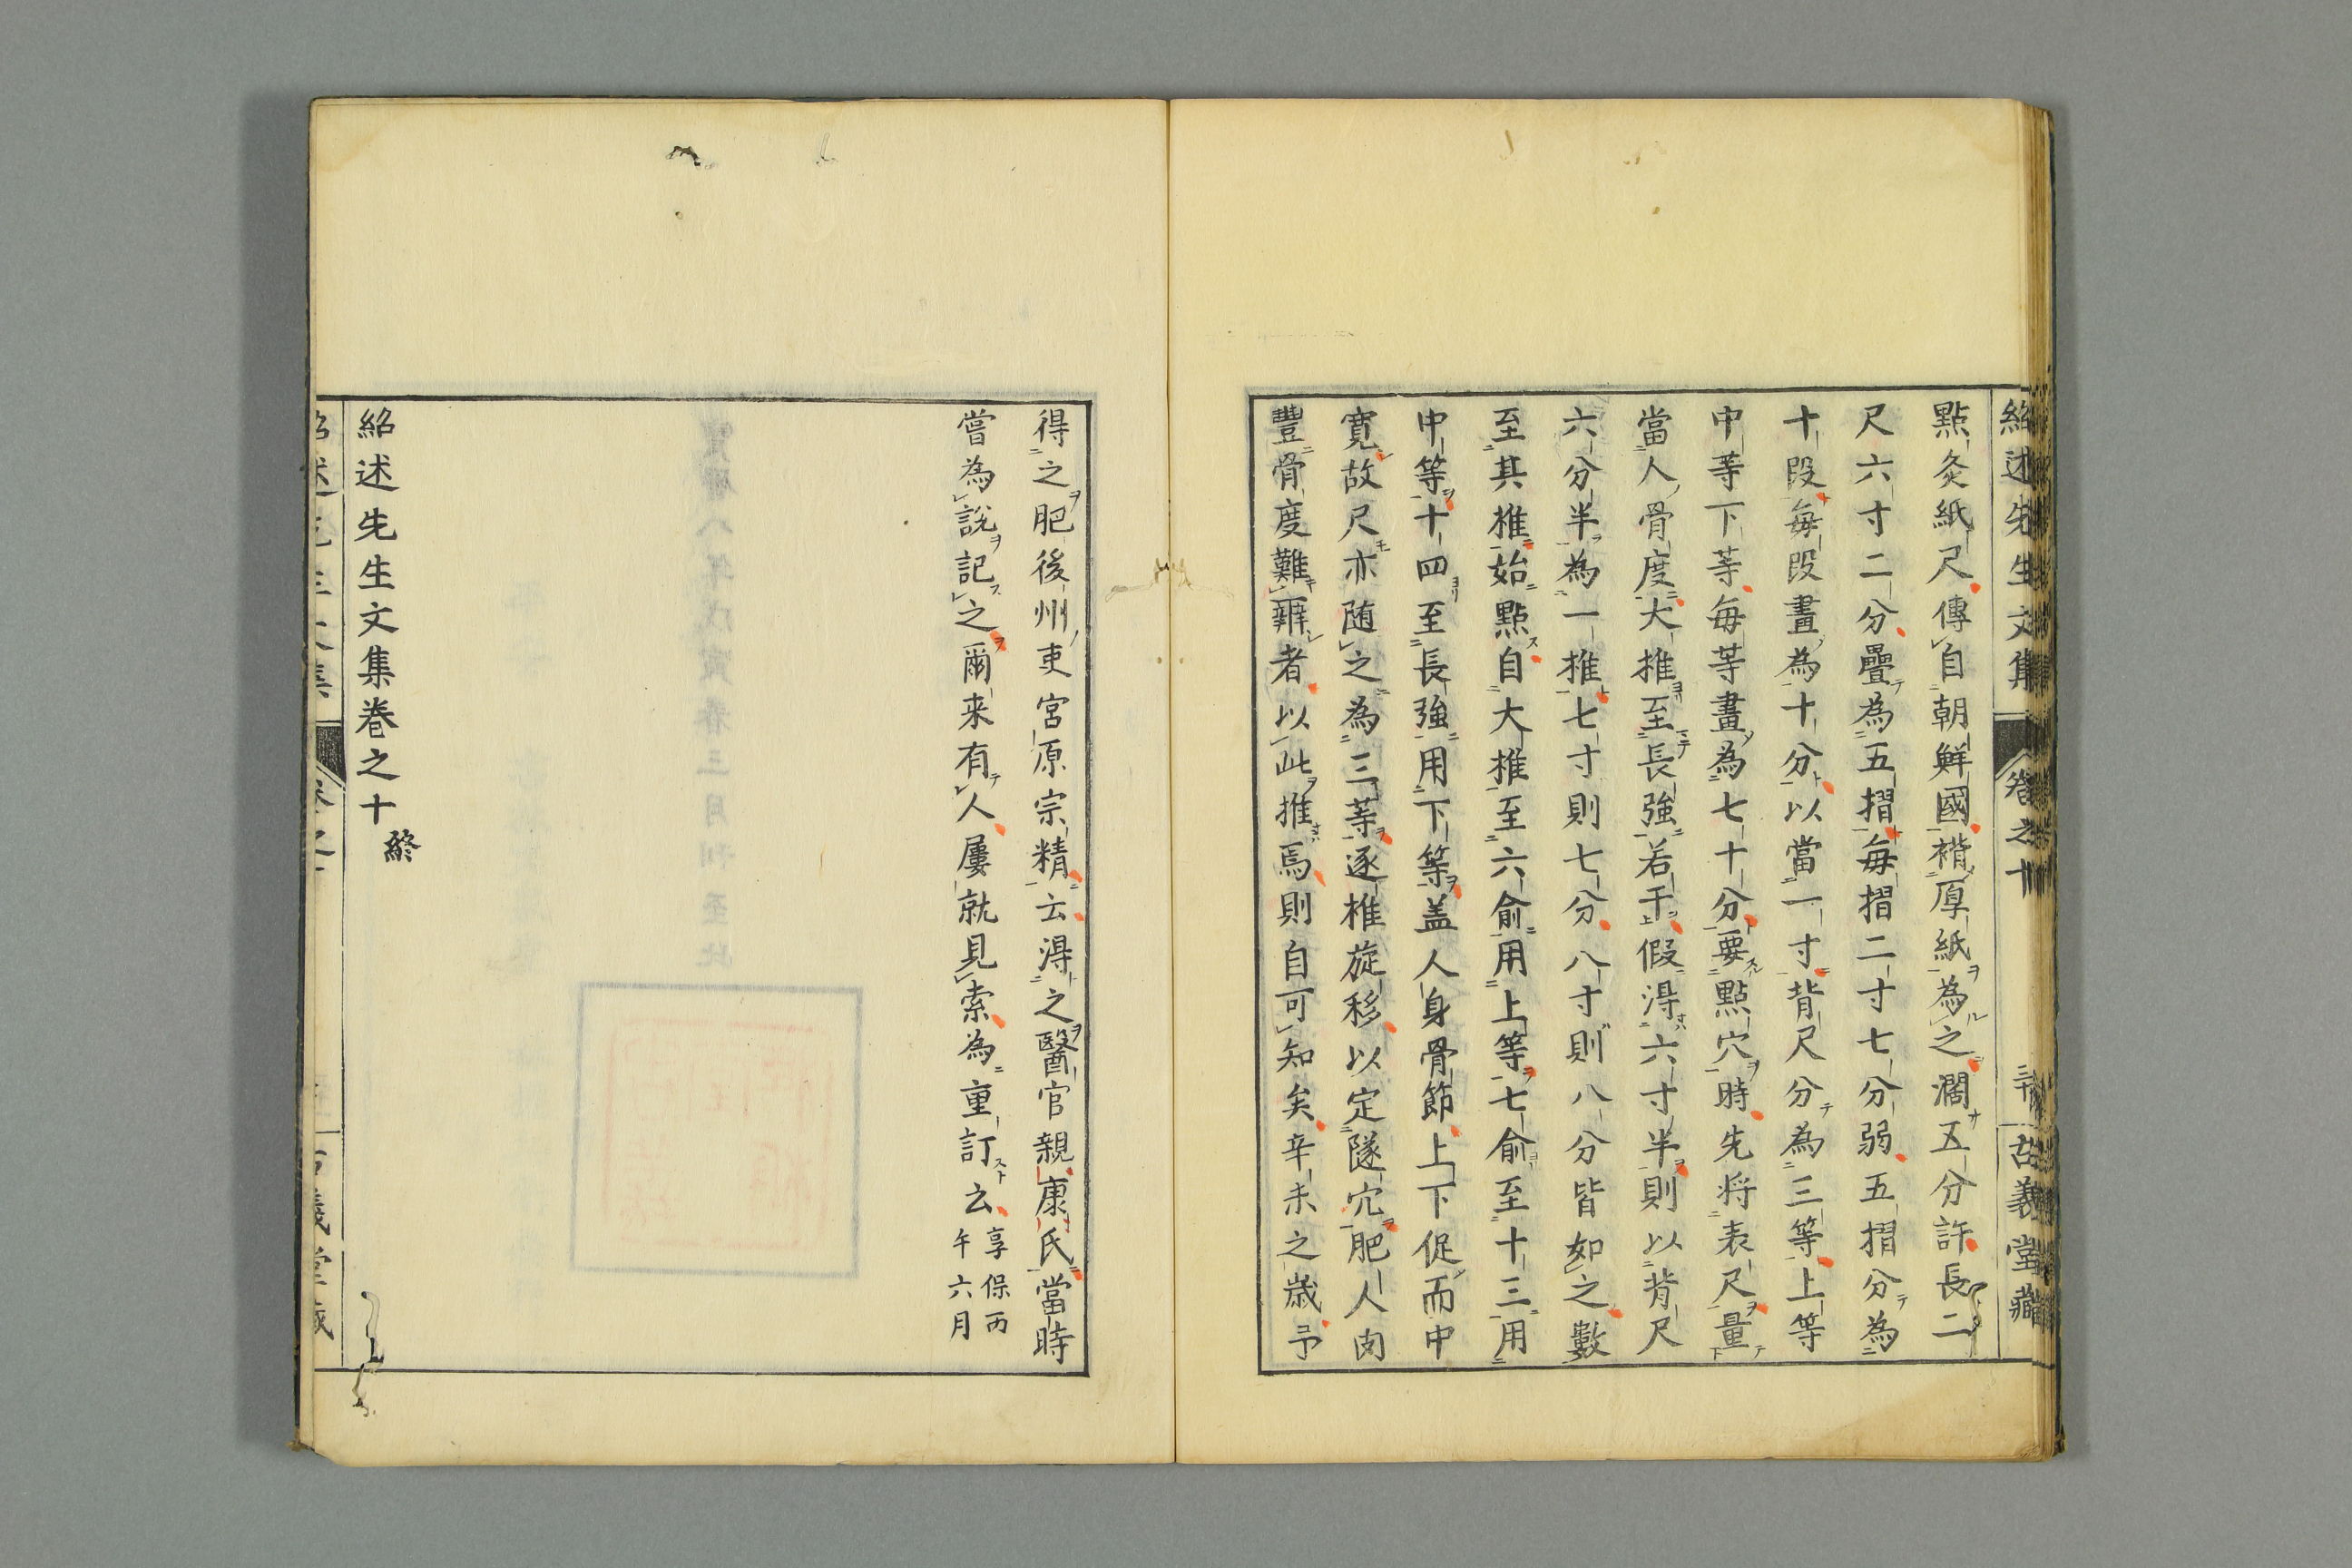 紹述先生文集 卷之十 三十 古義堂藏
點灸紙尺傳自朝鮮國褙厚紙為之濶五分許長二
尺六寸二分疊為五摺毎摺二寸七分弱五摺分為
十段毎段畫為十分以當一寸背尺分為三等上等
中等下等毎等畫為七十分要點穴時先將表尺量
當人骨度大推至長強若干假淂六寸半則以背尺
六分半為一推七寸則七分八寸則八分皆如之數
至其推始點自大推至六俞用上等七俞至十三用
中等十四至長強用下等盖人身骨節上下促而中
寛故尺亦随之為三等逐椎旋移以定隧穴肥人肉
豐骨度難辨者以此推焉則自可知矣辛未之歳予
得之肥後州吏宮原宗精云淂之醫官親康氏當時
嘗為說記之爾来有人屢就見索為重訂云享保丙
午六月
紹述先生文集卷之十終